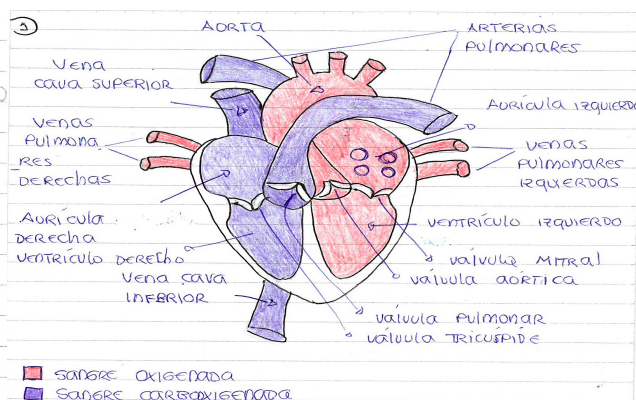 1
AORTA
ARTERIAS
PULMONARES
VENA
CAVA SUPERIOR
AURÍCULA IZQUIERDA
VENAS
PULMONA
RES
DERECHAS
VENAS
PULMONARES
IZQUIERDAS
AURÍCULA
DERECHA
VENTRÍCULO IZQUIERDO
VENTRÍCULO DERECHO
VÁLVULA MITRAL
VENA CAVA
INFERIOR
VÁLVULA AÓRTICA
VÁLVULA PULMONAR
VÁLVULA TRICÚSPIDE
SANGRE OXIGENADA
SANGRE CARBOXIGENADA